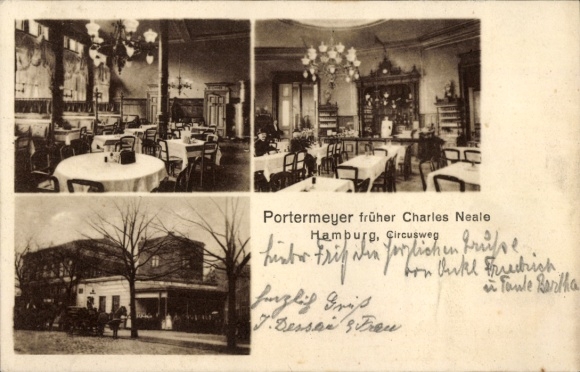 Portermeyer früher Charles Neale
Hamburg, Circusweg
Lieber Fritz die herzlichen Grüße
von Onkel Friedrich
u Tante Bertha
herzlich Gruß
J. Dessau & Frau